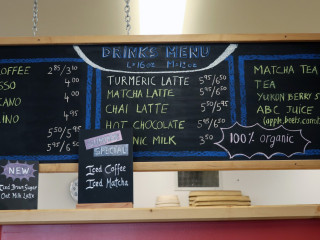 DRINKS MENU
L=16oz M=12oz
OFFEE 2.85/3.10
SSO 4.00
CANO 4.00
INO 4.95
5.50/5.95
5.95/6.50
TURMERIC LATTE 5.95/6.50
MATCHA LATTE 5.95/6.50
CHAI LATTE 5.50/5.95
HOT CHOCOLATE 5.95/6.50
NIC MILK 3.50
MATCHA TEA
TEA
ABC JUICE
100% organic
SPECIAL
Iced Coffee
Iced Matcha
NEW
Iced Brown Sugar
Oat Milk Latte